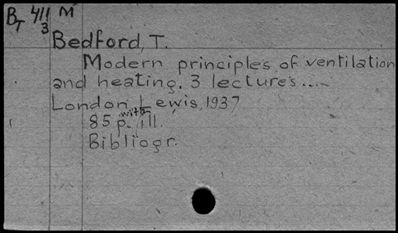 BT 411 M
3
Bedford, T.
Modern principles of ventilation
and heating. 3 lectures.....
London, Lewis, 1937
85 p. with ill.
Bibliogr.